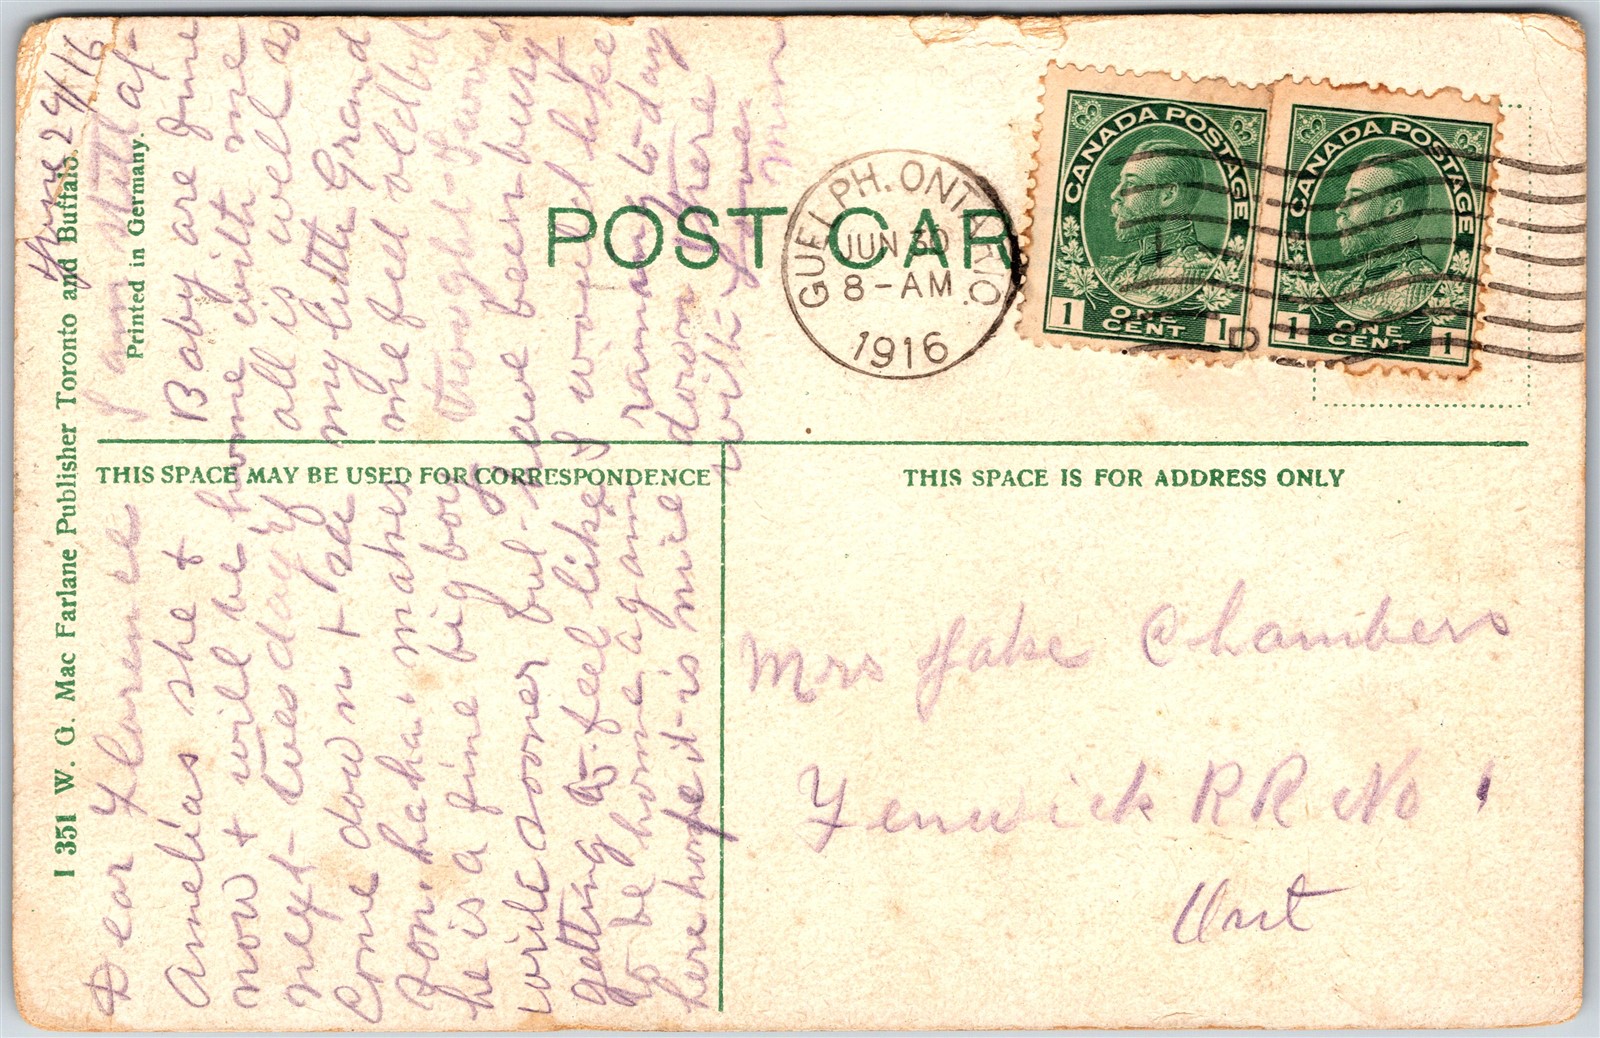 POST CAR
CANADA POSTAGE
1 ONE CENT 1
CANADA POSTAGE
1 ONE CENT 1
GUELPH. ONTARIO.
JUN 30
8-AM
1916
THIS SPACE MAY BE USED FOR CORRESPONDENCE
THIS SPACE IS FOR ADDRESS ONLY
Mrs Jake Chambers
Fenwick RR No 1
Ont
I 351 W. G. Mac Farlane Publisher Toronto and Buffalo.
Printed in Germany.
June 29/16
Dear Florence I am still at
Amelias she + Baby are fine
now + will be home with me
next tuesday if all is well so
Come down + see my little Grand
Son. haha makes me feel old but
he is a fine big boy thought I would
write sooner but have been busy
getting to feel like I would like
to be home again raining to day
here hope it is nice down there
with love Mum